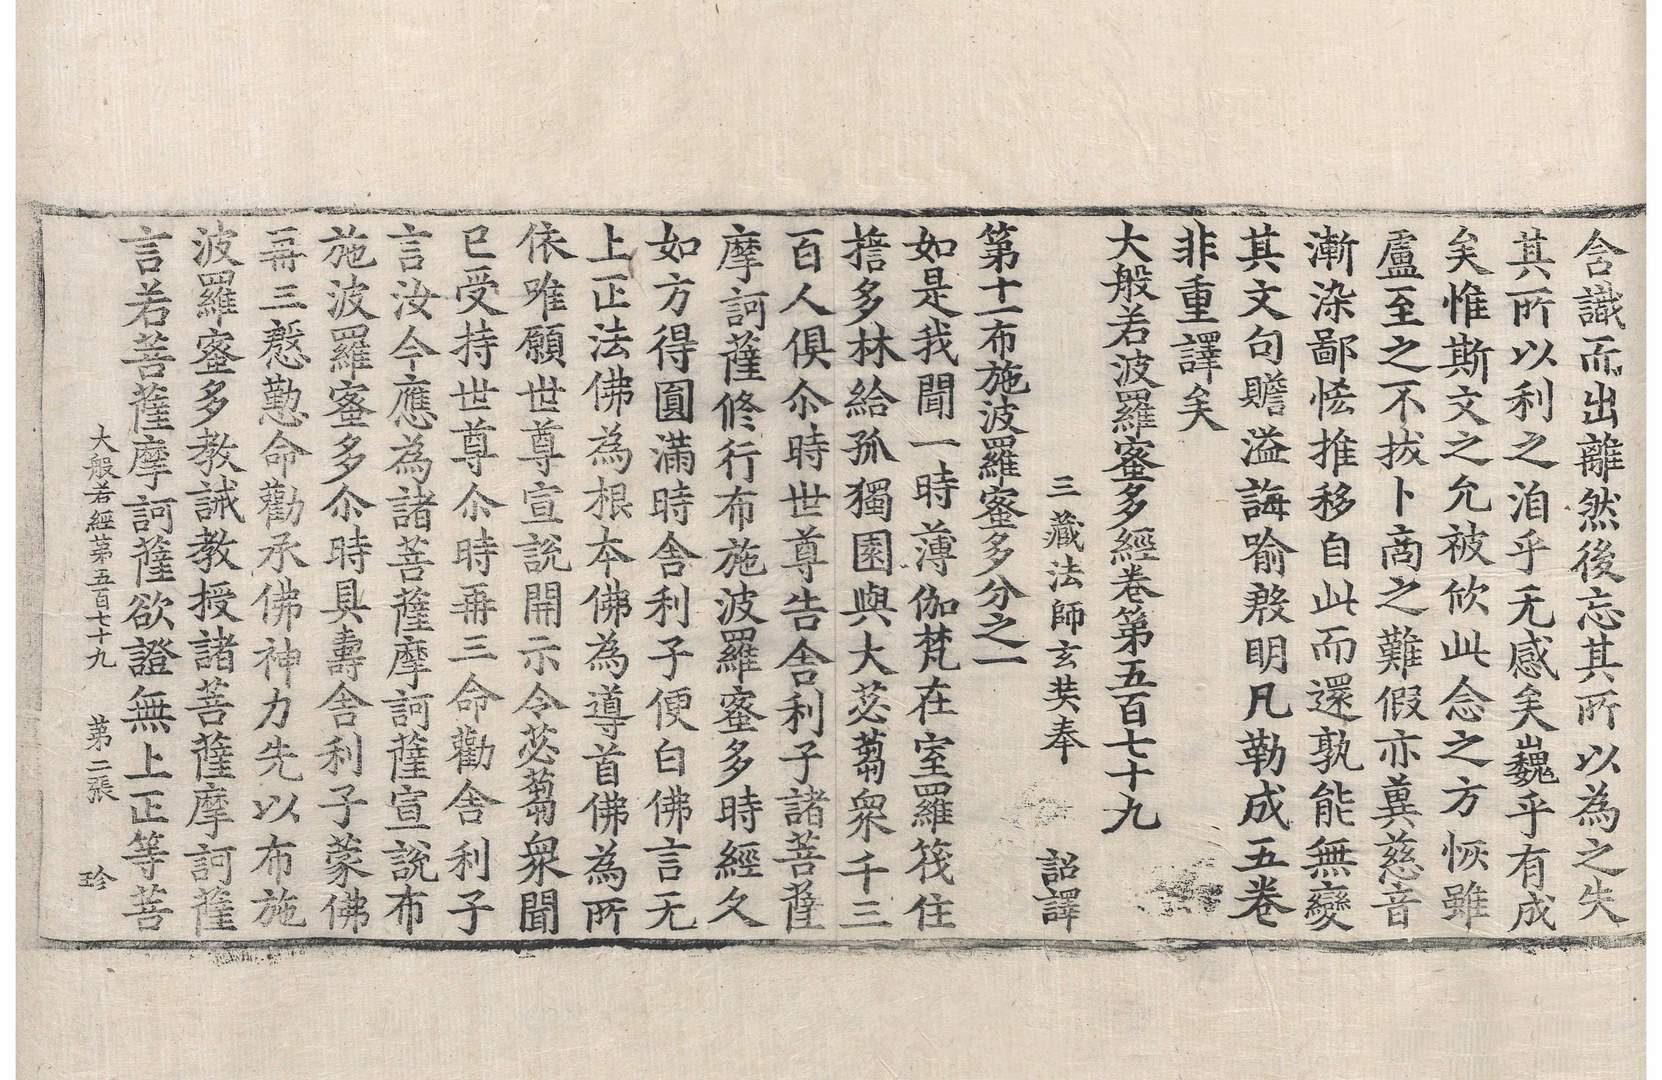 含識而出離然後忘其所以為之失
其所以利之洎乎无感矣巍乎有成
矣惟斯文之允被攸此念之方恢雖
盧至之不拔卜商之難假亦冀慈音
漸染鄙悋推移自此而還孰能無變
其文句贍溢誨喻殷明凡勒成五卷
非重譯矣
大般若波羅蜜多經卷第五百七十九
三藏法師玄奘奉　詔譯
第十一布施波羅蜜多分之一
如是我聞一時薄伽梵在室羅筏住
誓多林給孤獨園與大苾蒭衆千三
百人俱尒時世尊告舍利子諸菩薩
摩訶薩修行布施波羅蜜多時經久
如方得圓滿時舍利子便白佛言无
上正法佛為根本佛為導首佛為所
依唯願世尊宣說開示令苾蒭衆聞
已受持世尊尒時再三命勸舍利子
言汝今應為諸菩薩摩訶薩宣說布
施波羅蜜多尒時具壽舍利子蒙佛
再三慇懃命勸承佛神力先以布施
波羅蜜多教誡教授諸菩薩摩訶薩
言若菩薩摩訶薩欲證無上正等菩
大般若經第五百七十九　第二張　珍